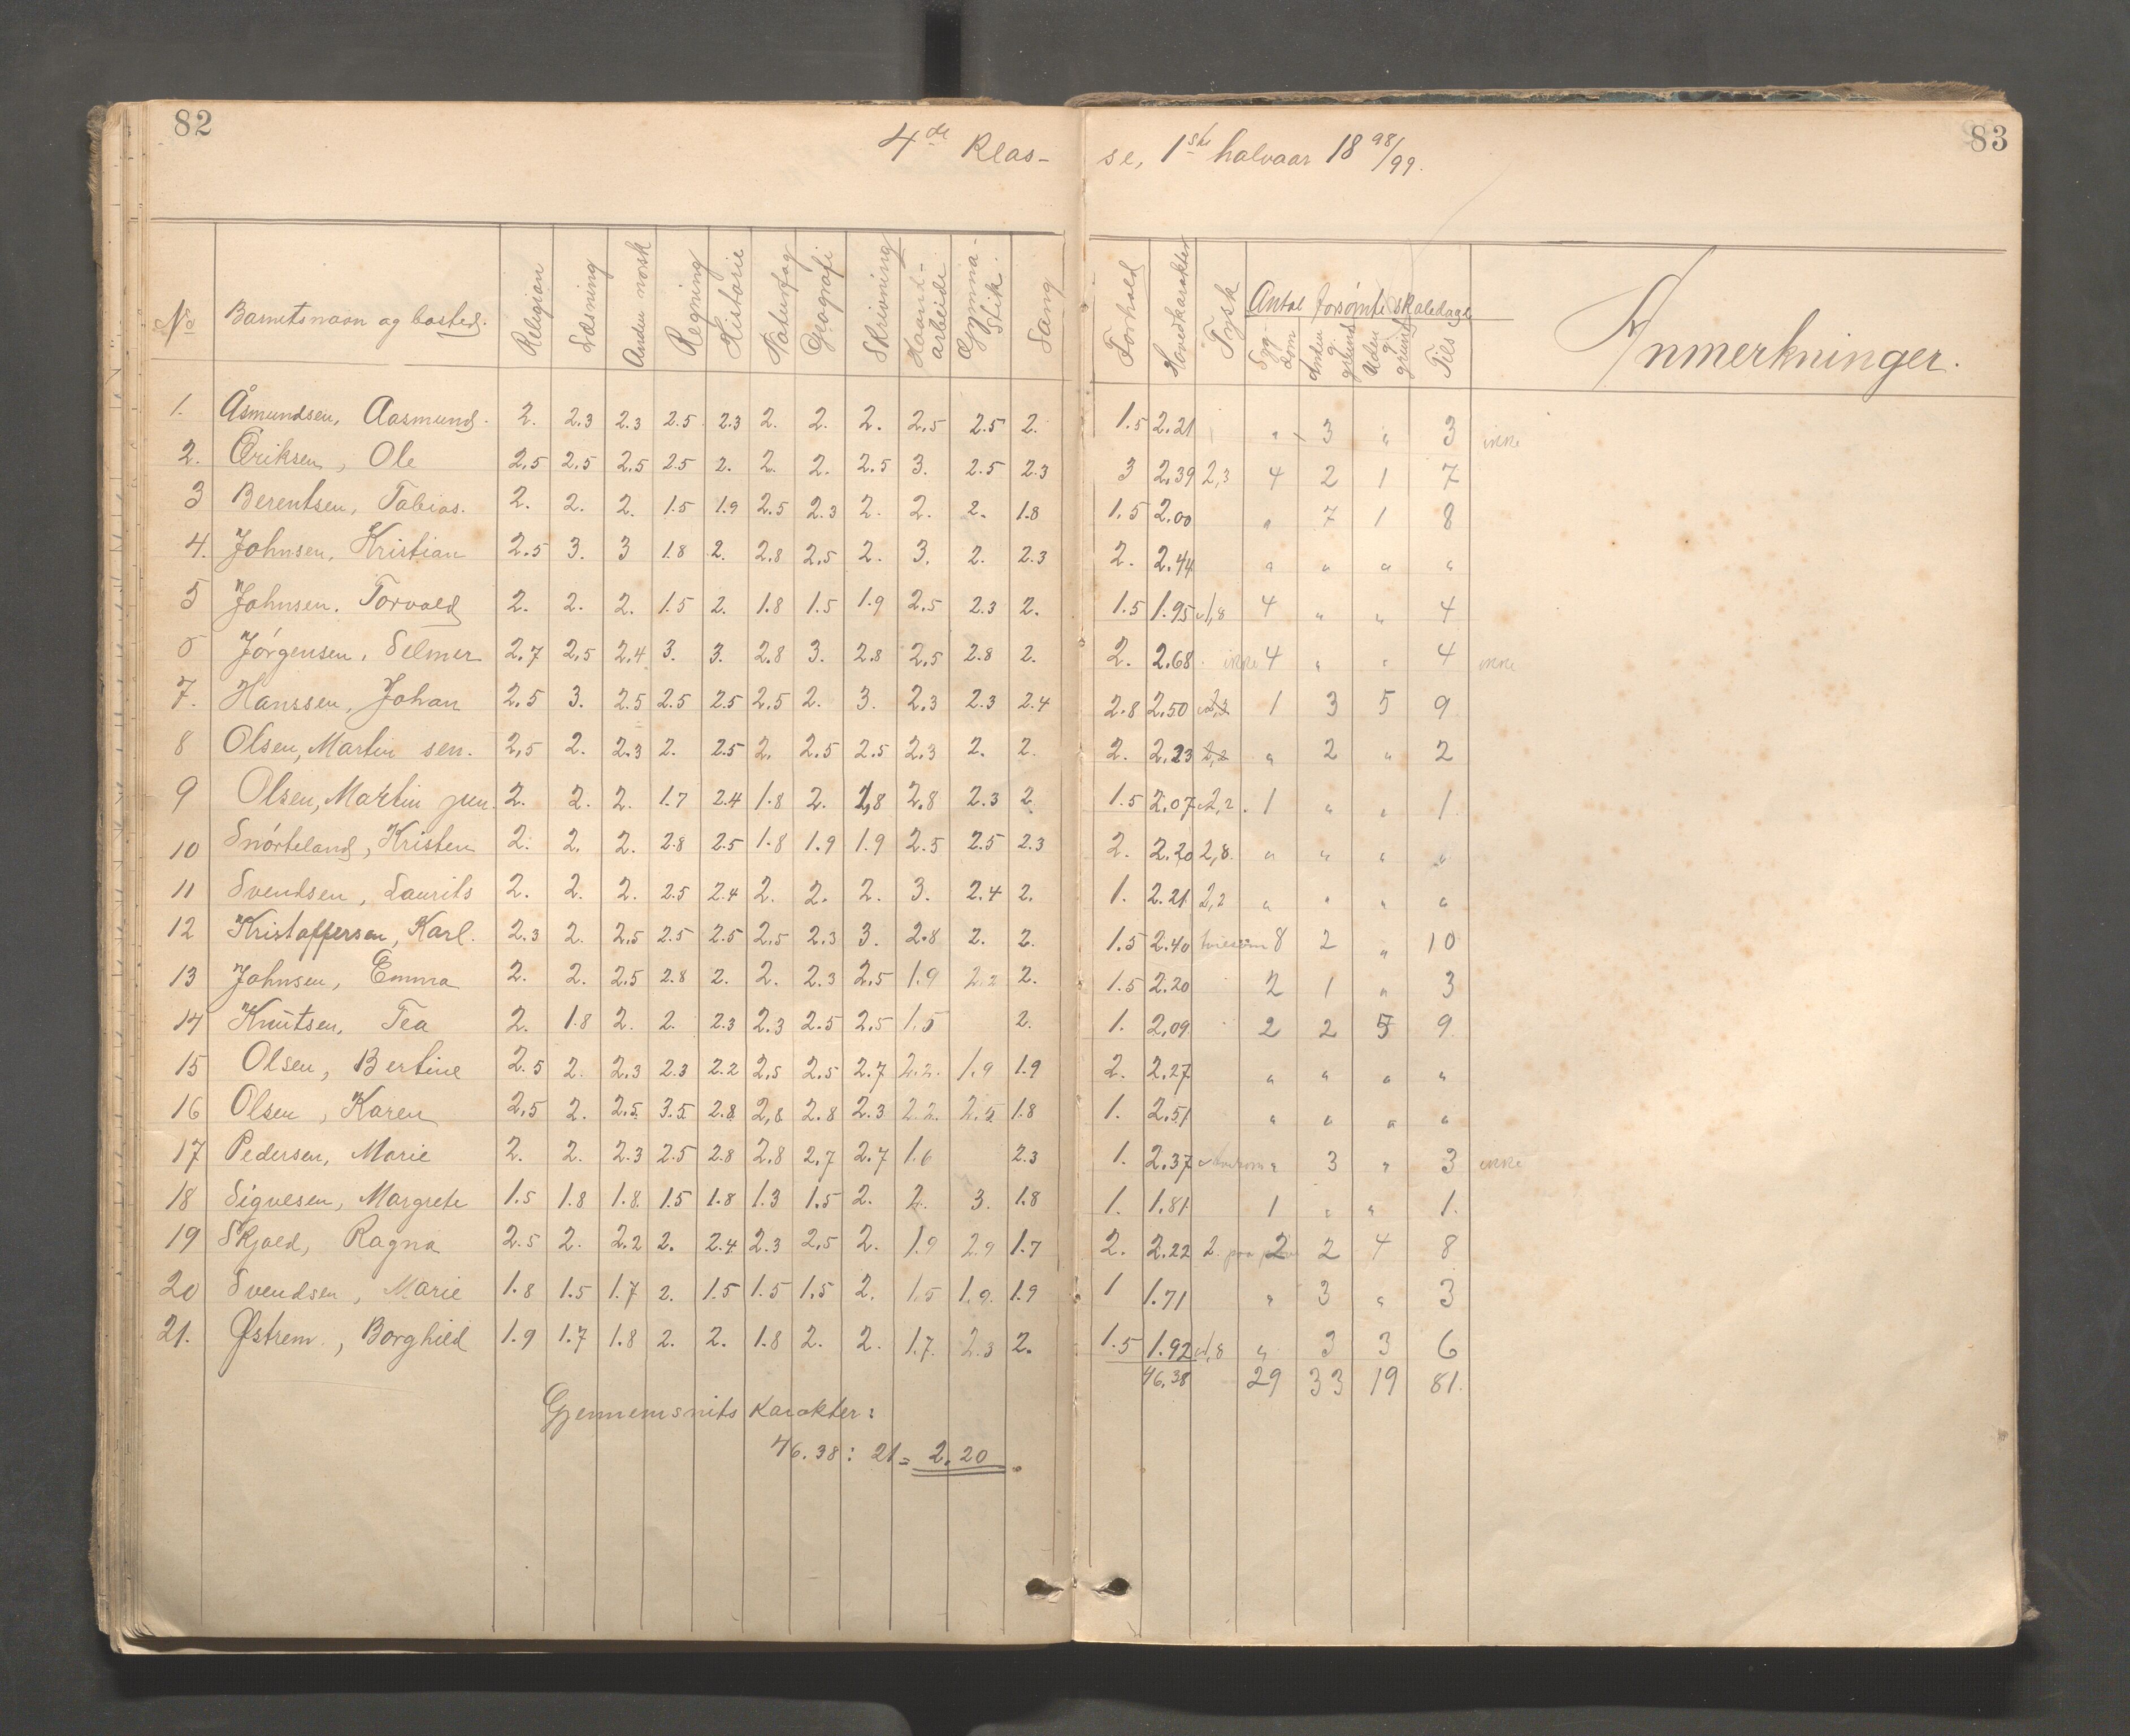 82
83
4de Klas-
se, 1ste halvaar 1898/99.
No Barnets navn og bosted. Religion Læsning Anden norsk Regning Historie Naturfag Geografi Skrivning Haand-arbeide Gymna-stik. Sang Forhold Hovedkarakter Tysk Antal forsømte skoledage Syg-dom Anden g. grund Uden g. grund Tils Anmerkninger.
1. Åsmundsen, Aasmund. 2. 2.3 2.3 2.5 2.3 2. 2. 2. 2.5 2.5 2. 1.5 2.21 " 3 " 3 ikke
2. Eriksen, Ole 2.5 2.5 2.5 2.5 2. 2. 2. 2.5 3. 2.5 2.3 3 2.39 2,3 4 2 1 7
3 Berentsen, Tobias. 2. 2. 2. 1.5 1.9 2.5 2.3 2. 2. 2. 1.8 1.5 2.00 " 7 1 8
4. Johnsen, Kristian 2.5 3. 3 1.8 2. 2.8 2.5 2. 3. 2. 2.3 2. 2.44 " " " "
5 Johnsen. Torvald 2. 2. 2. 1.5 2. 1.8 1.5 1.9 2.5 2.3 2. 1.5 1.95 1,8 4 " " 4
6 Jørgensen, Selmer 2.7 2.5 2.4 3. 3. 2.8 3. 2.8 2.5 2.8 2. 2. 2.68 ikke 4 " " 4 ikke
7. Hanssen, Johan 2.5 3. 2.5 2.5 2.5 2.5 2. 3. 2.3 2.3 2.4 2.8 2.50 2,3 1 3 5 9
8 Olsen, Martin sen. 2.5 2. 2.3 2. 2.5 2. 2.5 2.5 2.3 2. 2. 2. 2.23 2,2 " 2 " 2
9 Olsen, Martin jun. 2. 2. 2. 1.7 2.4 1.8 2. 1,8 2.8 2.3 2. 1.5 2.07 2,2. 1 " " 1
10 Snørteland, Kristen 2. 2. 2. 2.8 2.5 1.8 1.9 1.9 2.5 2.5 2.3 2. 2.20 2,8. " " " "
11 Svendsen, Laurits 2. 2. 2. 2.5 2.4 2. 2. 2. 3. 2.4 2. 1. 2.21 2,2 " " " "
12 Kristoffersen, Karl. 2.3 2. 2.5 2.5 2.5 2.5 2.3 3. 2.8 2. 2. 1.5 2.40 8 2 " 10
13 Johnsen, Emma 2. 2. 2.5 2.8 2. 2. 2.3 2.5 1.9 2.2 2. 1.5 2.20 2 1 " 3
14 Knutsen, Tea 2. 1.8 2. 2. 2.3 2.3 2.5 2.5 1.5 2. 1. 2.09 2 2 5 9
15 Olsen, Bertine 2.5 2. 2.3 2.3 2.2 2.5 2.5 2.7 2.2. 1.9 1.9 2. 2.27 " " " "
16 Olsen, Karen 2.5 2. 2.5 3.5 2.8 2.8 2.8 2.3 2.2. 2.5 1.8 1. 2.51 " " " "
17 Pedersen, Marie 2. 2. 2.3 2.5 2.8 2.8 2.7 2.7 1.6 2.3 1. 2.37 " 3 " 3 ikke
18 Sigvesen, Margrete 1.5 1.8 1.8. 1.5 1.8 1.3 1.5 2. 2. 3. 1.8 1. 1.81. 1 " " 1.
19 Skjold, Ragna 2.5 2. 2.2 2. 2.4 2.3 2.5 2. 1.9 2.9 1.7 2. 2.22 2. 2 2 4 8
20 Svendsen, Marie 1.8 1.5 1.7 2. 1.5 1.5 1.5 2. 1.5 1.9. 1.9 1 1.71 " 3 " 3
21. Østrem., Borghild 1.9 1.7 1.8 2. 2. 1.8 2. 2. 1.7. 2.3 2. 1.5 1.92 1,8 " 3 3 6
46.38 29 33 19 81.
Gjennemsnits karakter:
46.38 : 21 = 2.20.